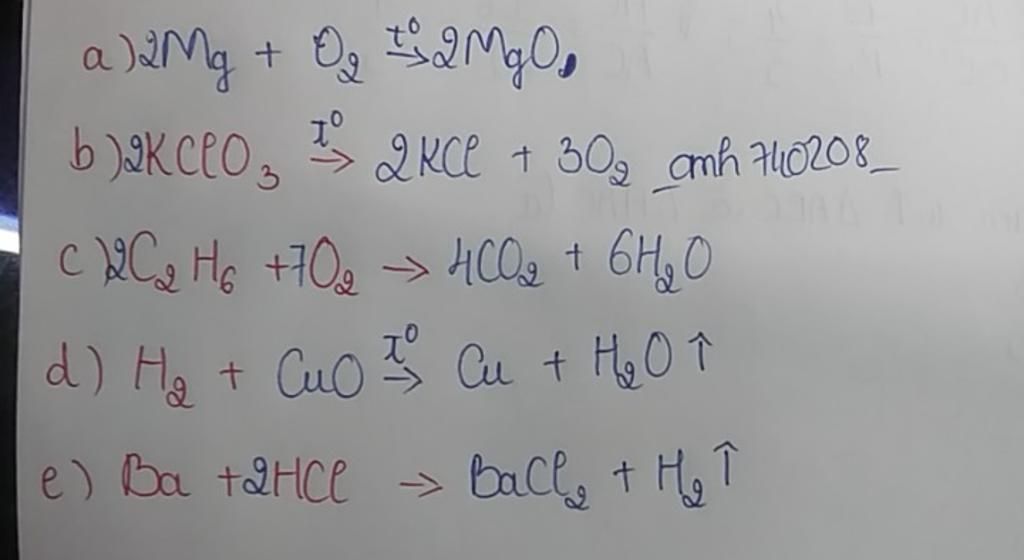 a) 2Mg + O₂ t⁰→ 2MgO.
b) 2KClO₃ t⁰→ 2KCl + 3O₂ _amh740208_
c) 2C₂H₆ + 7O₂ → 4CO₂ + 6H₂O
d) H₂ + CuO t⁰→ Cu + H₂O ↑
e) Ba + 2HCl → BaCl₂ + H₂ ↑